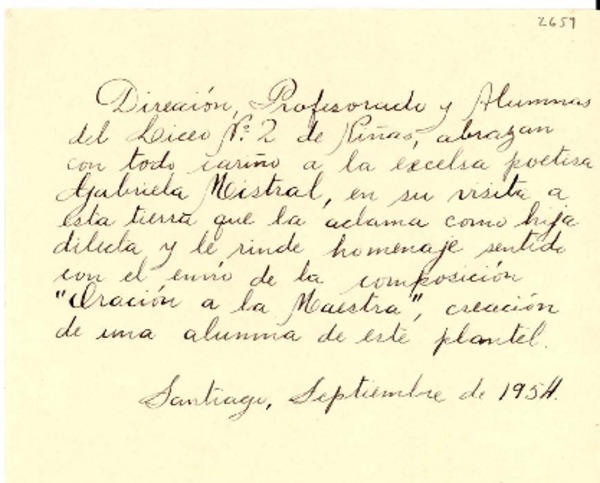 2659
Direción, Profesorado y Alumnas
del Liceo Nº 2 de Niñas, abrazan
con todo cariño a la excelsa poetisa
Gabriela Mistral, en su visita a
esta tierra que la aclama como hija
dilecta y le rinde homenaje sentido
con el envío de la composición
"Oración a la Maestra", creación
de una alumna de este plantel.
Santiago, Septiembre de 1954.